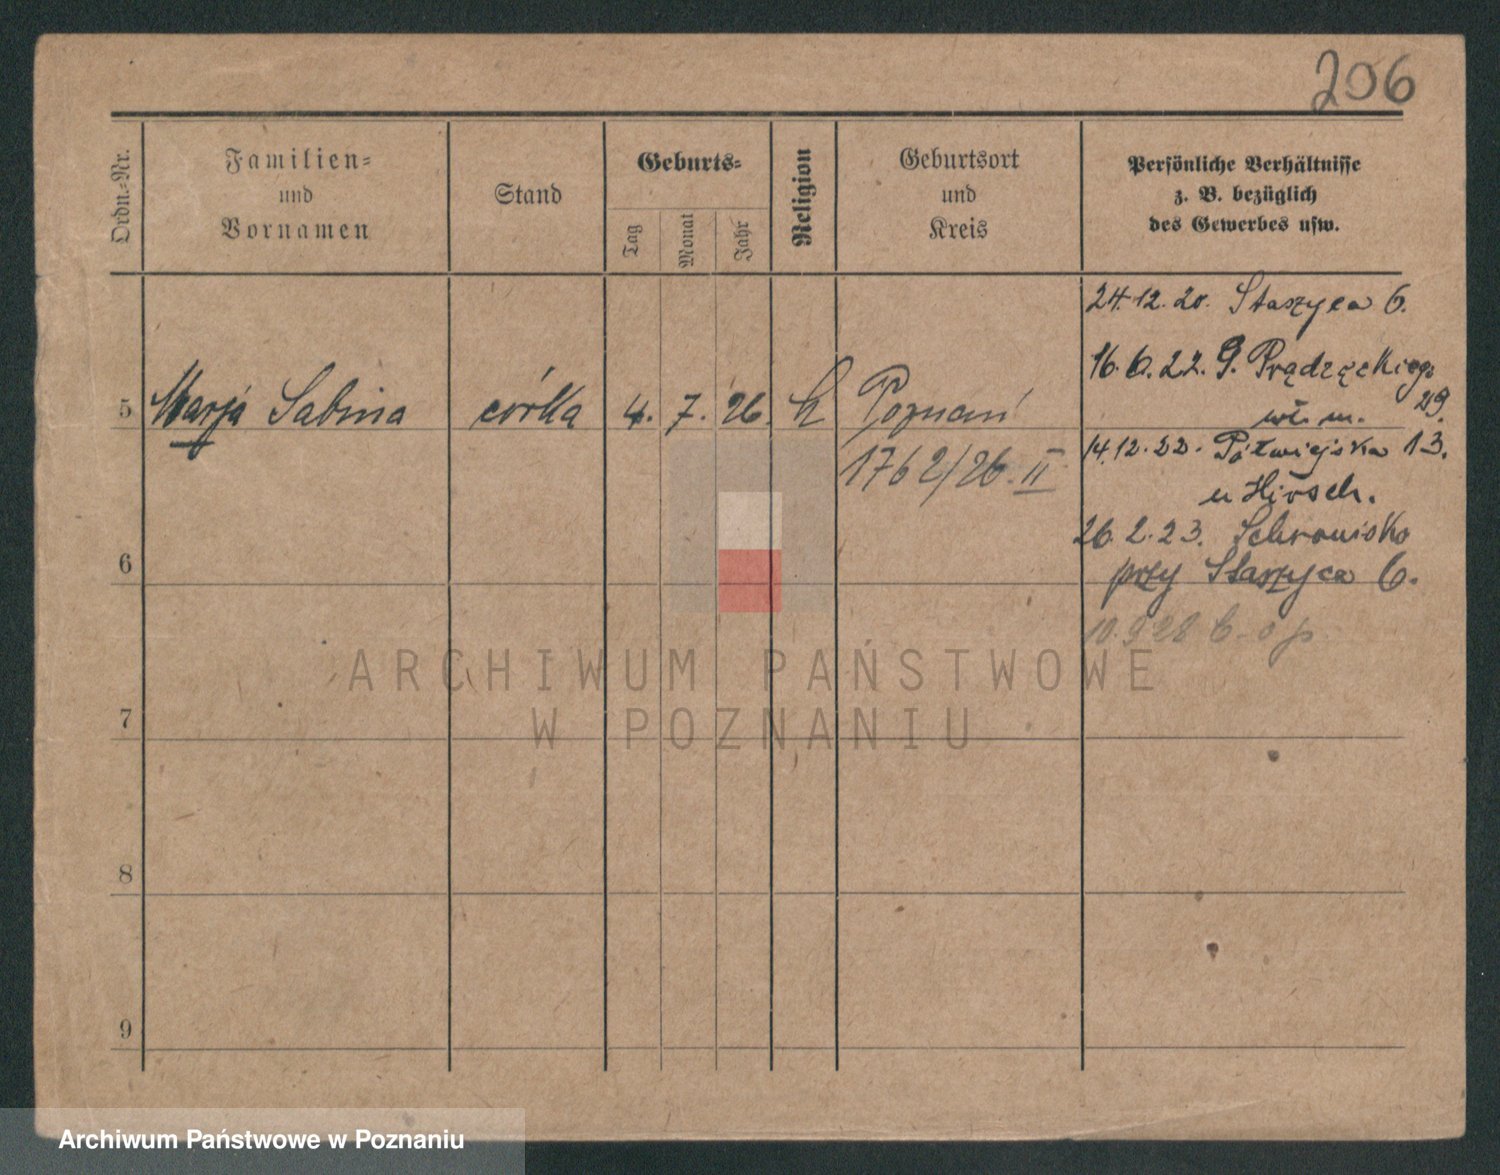 206
Ordn.-Nr.
Familien-
und
Vornamen
Stand
Geburts-
Tag
Monat
Jahr
Religion
Geburtsort
und
Kreis
Persönliche Verhältnisse
z. B. bezüglich
des Gewerbes usw.
24.12.20. Staszyca 6.
16.6.22. G. Prądzyńskiego
29.
5 Marja Sabina córka 4. 7. 26. k Poznań
1762/26. II
14.12.22. Półwiejska 13.
u Hirsch.
26.2.23. Schronisko
6 przy Staszyca 6.
10.9 28 b. o p.
7
8
9
ARCHIWUM PAŃSTWOWE
W POZNANIU
Archiwum Państwowe w Poznaniu